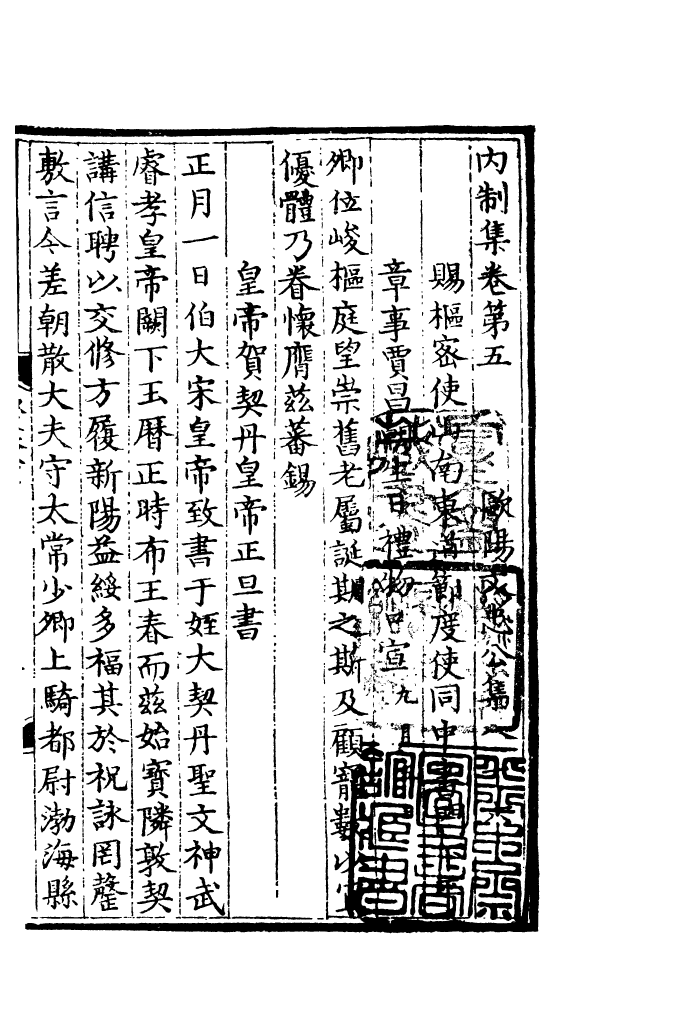 內制集卷第五　歐陽文忠公集八
賜樞密使山南東道節度使同中書門
章事賈昌朝生日禮物口宣九月
卿位峻樞庭望崇舊老屬誕期之斯及顧寵數以
優體乃眷懷膺茲蕃錫
皇帝賀契丹皇帝正旦書
正月一日伯大宋皇帝致書于姪大契丹聖文神武
睿孝皇帝闕下玉曆正時布王春而茲始寳隣敦契
講信聘以交修方履新陽益綏多福其於祝詠罔罄
敷言今差朝散大夫守太常少卿上騎都尉渤海縣